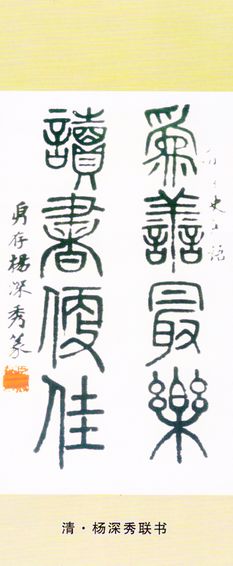 爲善最樂
史 語
讀書便佳
存楊深秀篆
清·杨深秀联书